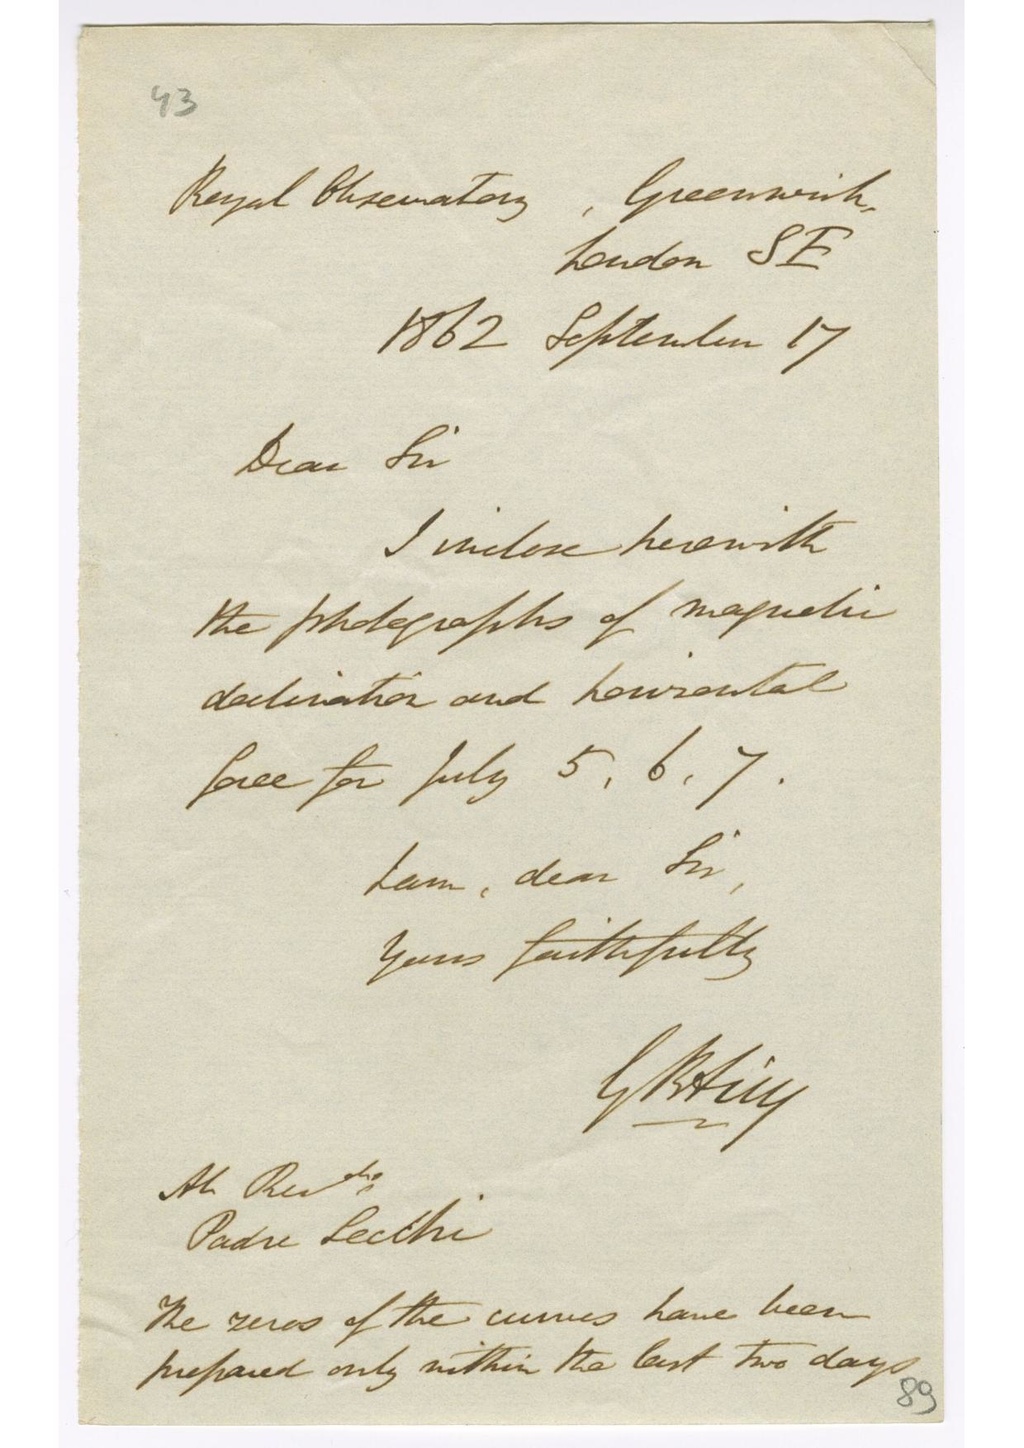 43
Royal Observatory, Greenwich,
London SE
1862 September 17
Dear Sir
I inclose herewith
the photographs of magnetic
declination and horizontal
force for July 5, 6, 7.
I am, dear Sir,
Yours faithfully
G B Airy
Al Rev.do
Padre Secchi
The zeros of the curves have been
prepared only within the last two days
89